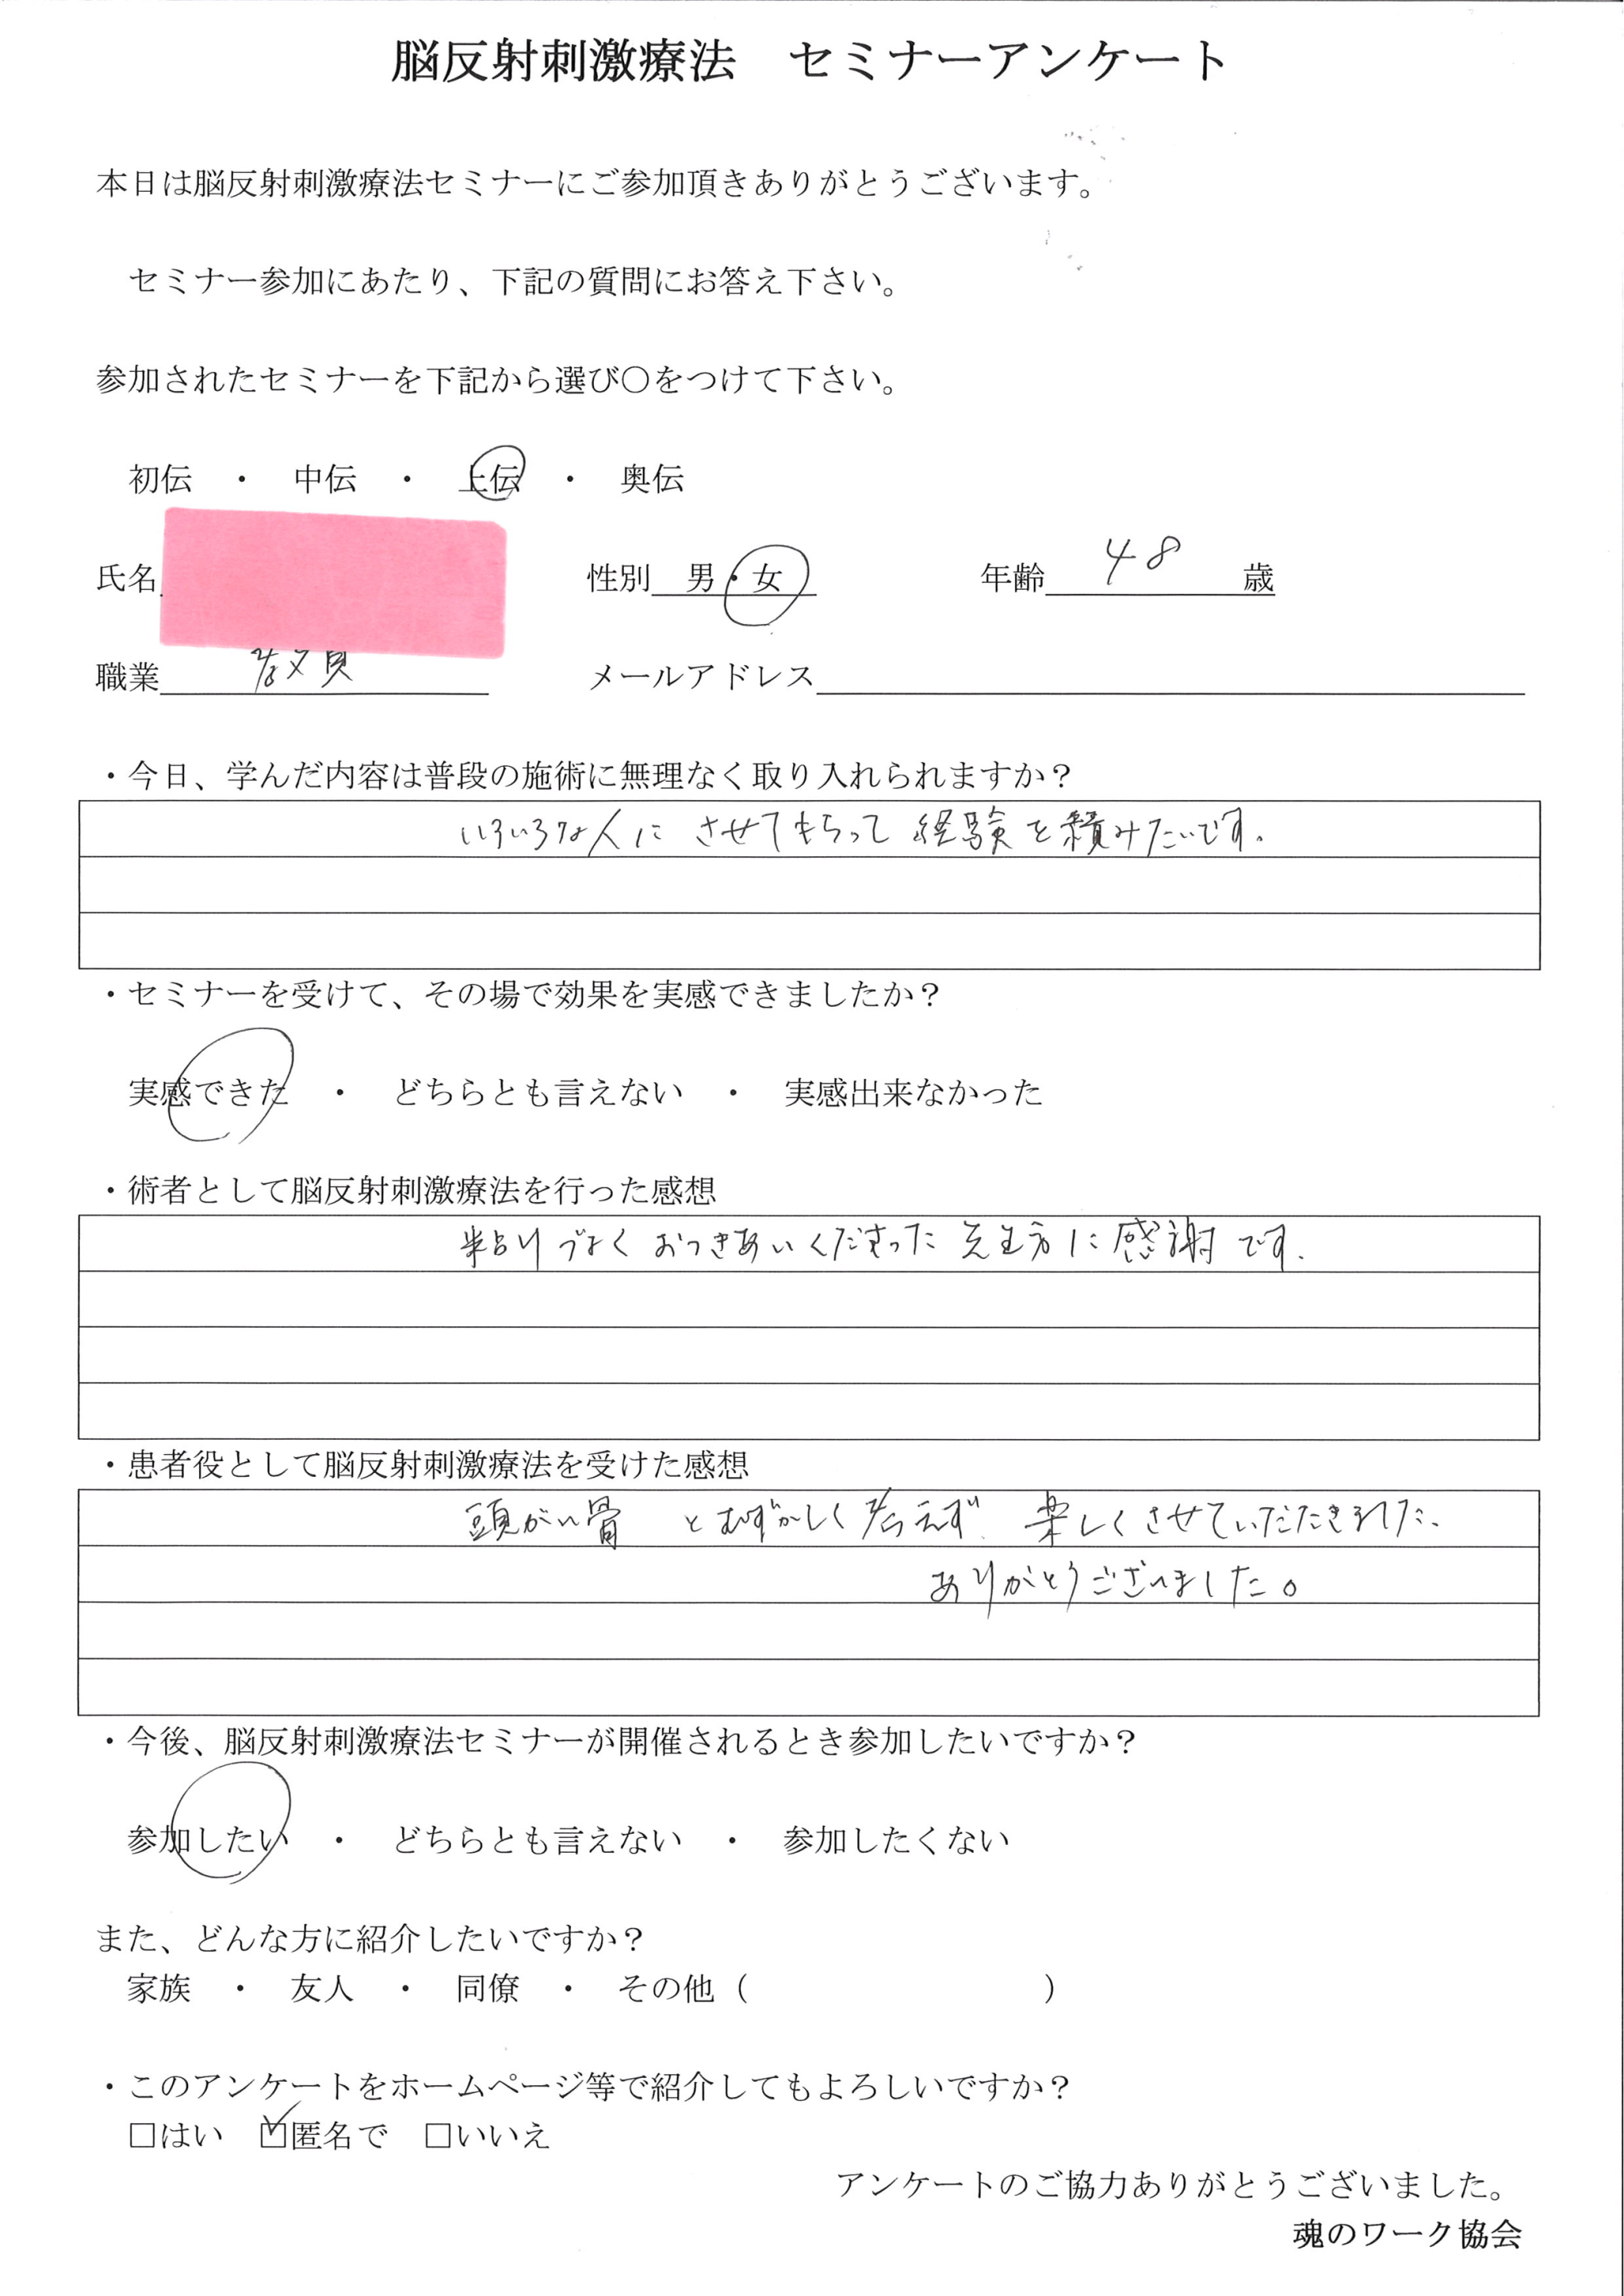 脳反射刺激療法　セミナーアンケート
本日は脳反射刺激療法セミナーにご参加頂きありがとうございます。
セミナー参加にあたり、下記の質問にお答え下さい。
参加されたセミナーを下記から選び〇をつけて下さい。
初伝　・　中伝　・　上伝　・　奥伝
氏名　性別　男・女　年齢　48　歳
職業　教員　メールアドレス
・今日、学んだ内容は普段の施術に無理なく取り入れられますか？
いろいろな人に させてもらって 経験を積みたいです。
・セミナーを受けて、その場で効果を実感できましたか？
実感できた　・　どちらとも言えない　・　実感出来なかった
・術者として脳反射刺激療法を行った感想
粘りづよく おつきあいくださった 先生方に 感謝です.
・患者役として脳反射刺激療法を受けた感想
頭がい骨 とむずかしく考えず、楽しくさせていただきました。
ありがとうございました。
・今後、脳反射刺激療法セミナーが開催されるとき参加したいですか？
参加したい　・　どちらとも言えない　・　参加したくない
また、どんな方に紹介したいですか？
家族　・　友人　・　同僚　・　その他（　　　　　　　　　）
・このアンケートをホームページ等で紹介してもよろしいですか？
□はい　☑匿名で　□いいえ
アンケートのご協力ありがとうございました。
魂のワーク協会